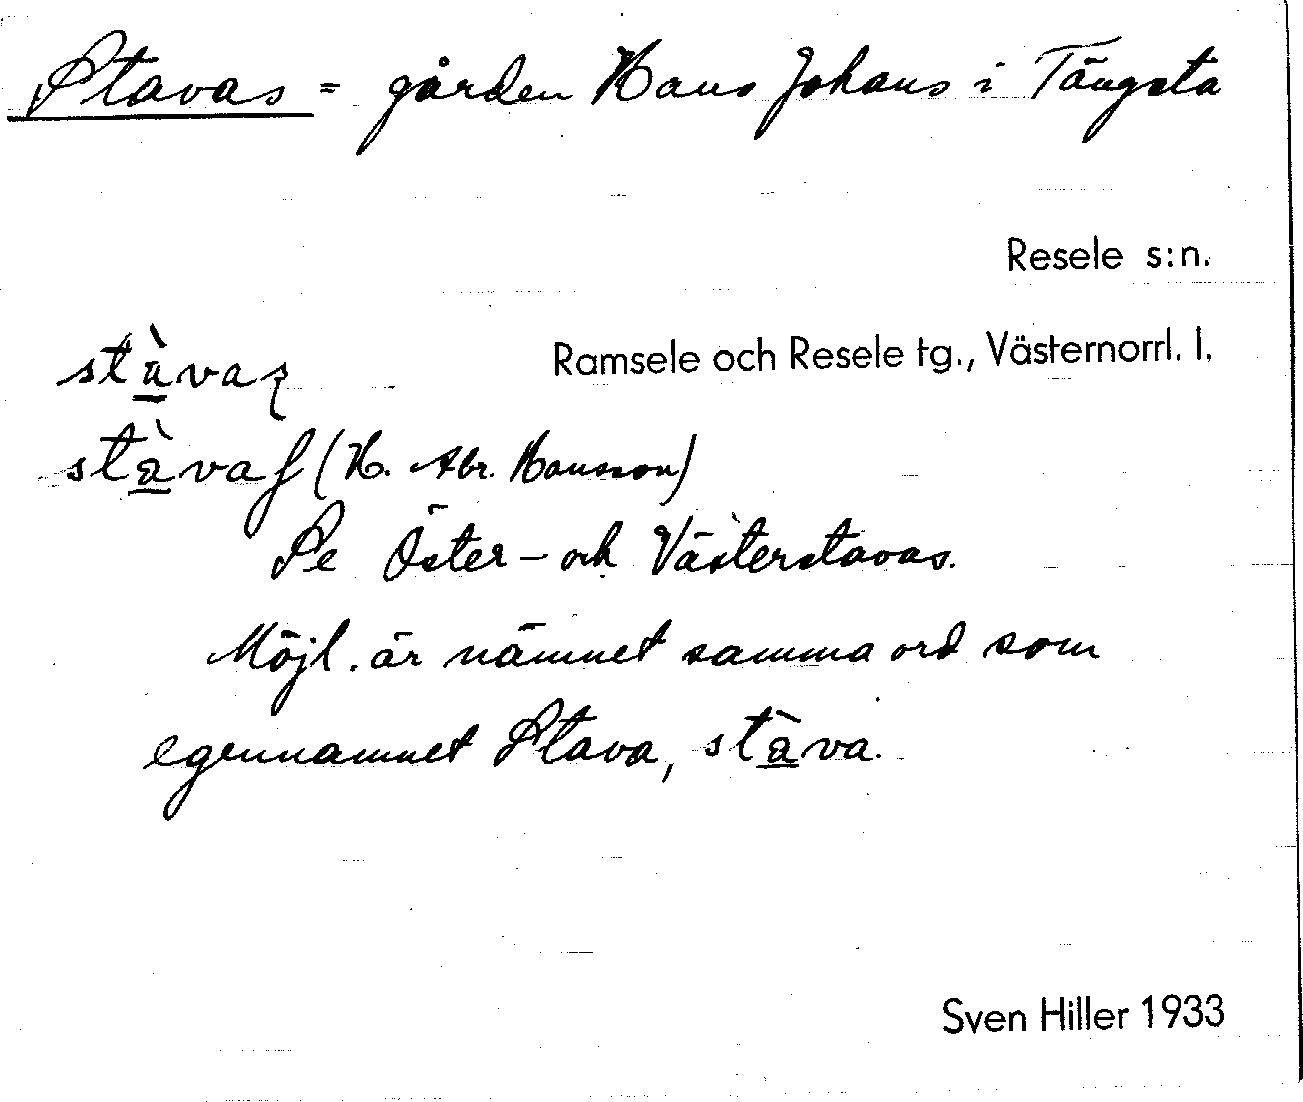 Stavas = gården Hans Johans i Tängsta
Resele s:n.
Ramsele och Resele tg., Västernorrl. l.
stàvaʒ
stàvaʃ (H. Abr. Hansson)
Se Öster- och Västerstavas.
Möjl. är nämnet samma ord som
egennamnet Stava, stàva.
Sven Hiller 1933